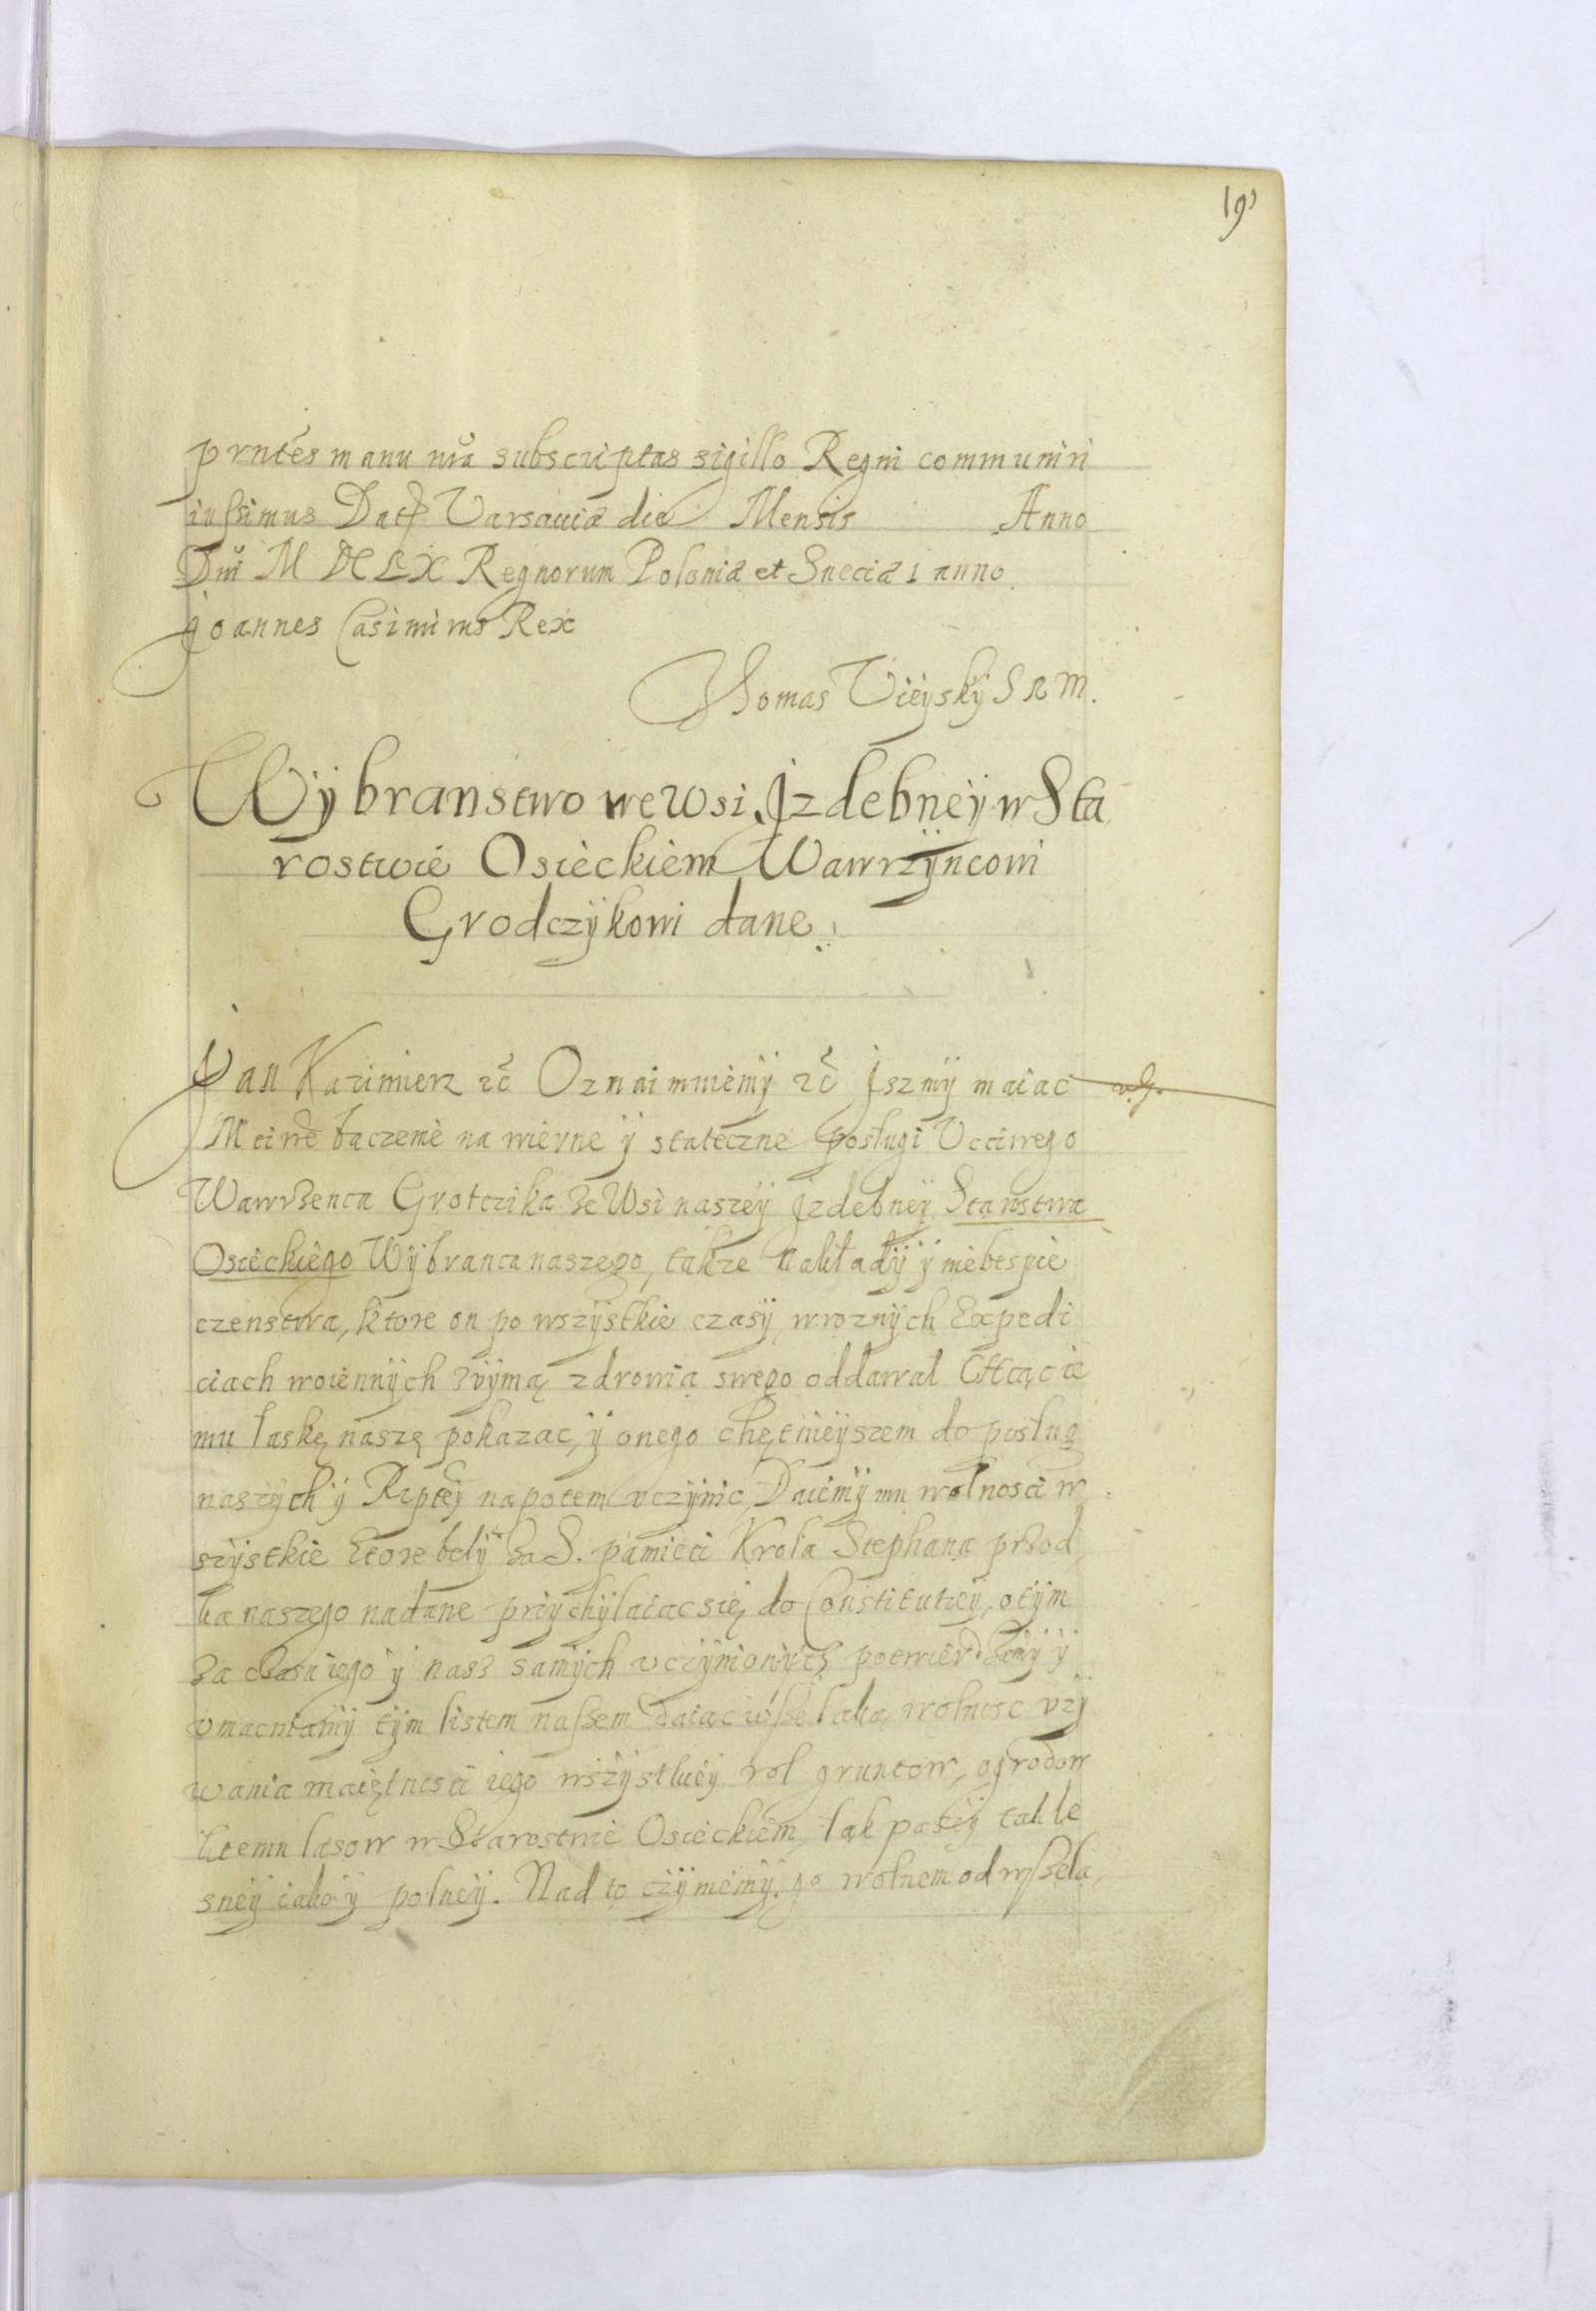 19
prntes manu nra subscriptas sigillo Regni communiri
iussimus Dat Varsauiæ die Mensis Anno
Dni M DC LX Regnorum Poloniæ et Sueciæ 1 anno
Joannes Casimirus Rex
Thomas Vieyskÿ S R M.
Wÿbranstwo we Wsi Jzdebneÿ w Sta
rostwie Osieckiem Wawrzÿncowi
Grodczÿkowi dane
Jan Kazimierz rc Oznaimuiemÿ rc Jszmÿ maiac
baczenie na wierne ÿ stateczne posługi Vcciwego
Wawrzenca Grotczika ze Wsi naszeÿ Jzdebneÿ Starostwa
Osieckiego Wÿbranca naszego, takze nakładÿ ÿ niebespie
czenstwa, ktore on po wszÿstkie czasÿ w roznÿch Expedi
ciach woiennÿch z vÿmą zdrowia swego oddawał Chcąc ie
mu łaskę naszę pokazac, ÿ onego chętnieÿszem do posług
naszÿch ÿ Rzpteÿ napotem vczÿnic, Daiemÿ mu wolnosci w
szÿstkie ktore bÿlÿ za S. pamieci Krola Stephana przod
ka naszego nadane przÿchÿlaiac się do Constitutieÿ, o tÿm
za czasu iego ÿ nasz samÿch vczÿnionÿch potwierdzamÿ ÿ
vmacniamÿ tÿm listem naszem daiąc wszelaką wolnosc vzÿ
wania maiętnosci iego wszÿstkieÿ rol gruntow, ogrodow
ktemu lasow w Starostwie Osieckiem, łąk paszÿ tak le
sneÿ iako ÿ polneÿ. Nad to czÿniemÿ go wolnem od wszela